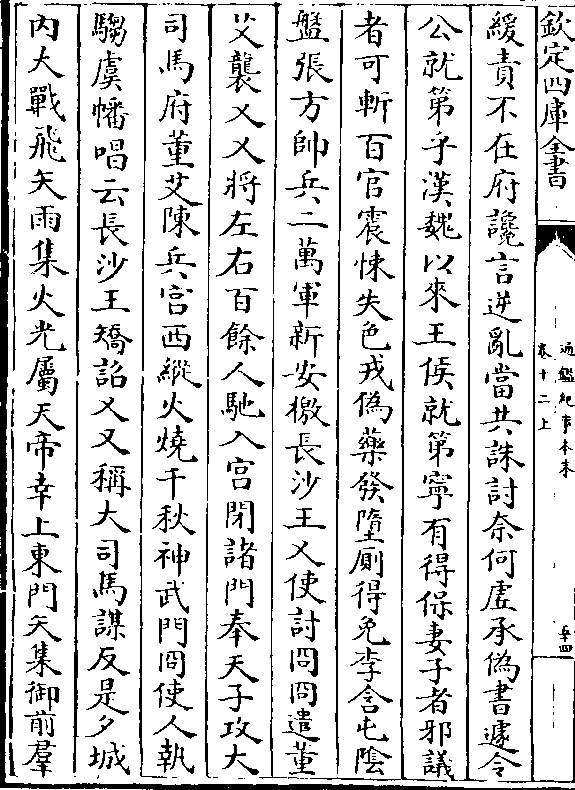 欽定四庫全書
通鑑紀事本末
卷十二上
五十四
緩責不在府讒言逆亂當共誅討奈何虛承偽書遽令
公就第乎漢魏以來王侯就第寧有得保妻子者邪議
者可斬百官震悚失色戎偽藥發墮厠得免李含屯隂
盤張方帥兵二萬軍新安檄長沙王乂使討冏冏遣董
艾襲乂乂將左右百餘人馳入宫閉諸門奉天子攻大
司馬府董艾陳兵宫西縱火燒千秋神武門冏使人執
騶虞幡唱云長沙王矯詔乂又稱大司馬謀反是夕城
内大戰飛矢雨集火光屬天帝幸上東門矢集御前羣